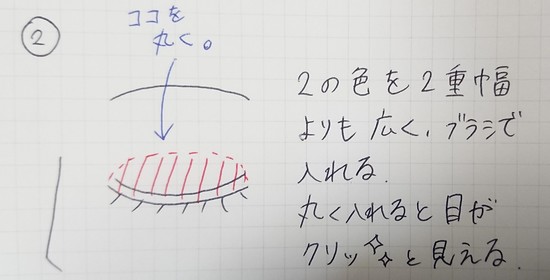 ②
ココを
丸く。
2の色を2重幅
よりも広く、ブラシで
入れる.
丸く入れると目が
クリッ✨と見える.